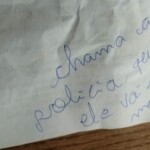 chama a
policia
ele va